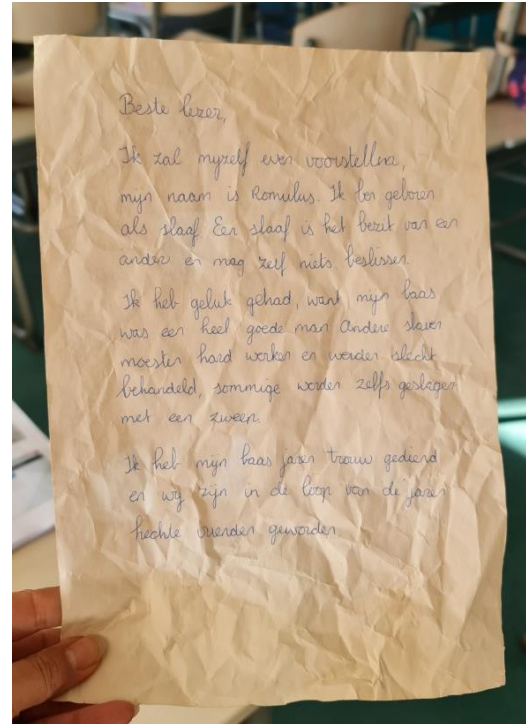 Beste lezer,
Ik zal mijzelf even voorstellen,
mijn naam is Romulus. Ik ben geboren
als slaaf. Een slaaf is het bezit van een
ander en mag zelf niets beslissen.
Ik heb geluk gehad, want mijn baas
was een heel goede man. Andere slaven
moesten hard werken en werden slecht
behandeld, sommige werden zelfs geslagen
met een zweep.
Ik heb mijn baas jaren trouw gediend
en wij zijn in de loop van de jaren
hechte vrienden geworden